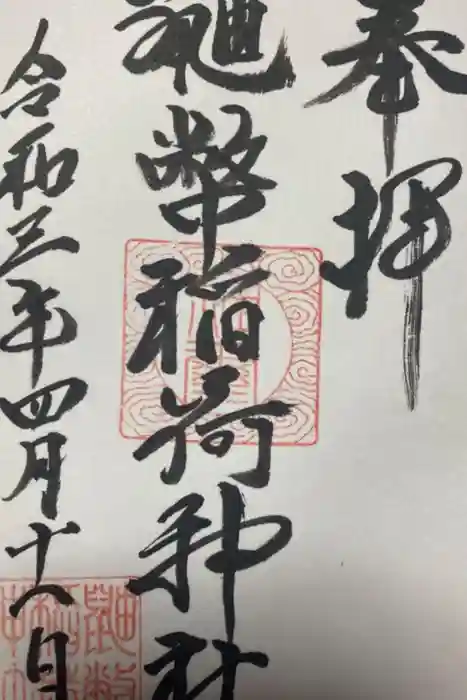 奉拝
鼬幣稲荷神社
令和三年四月十八日